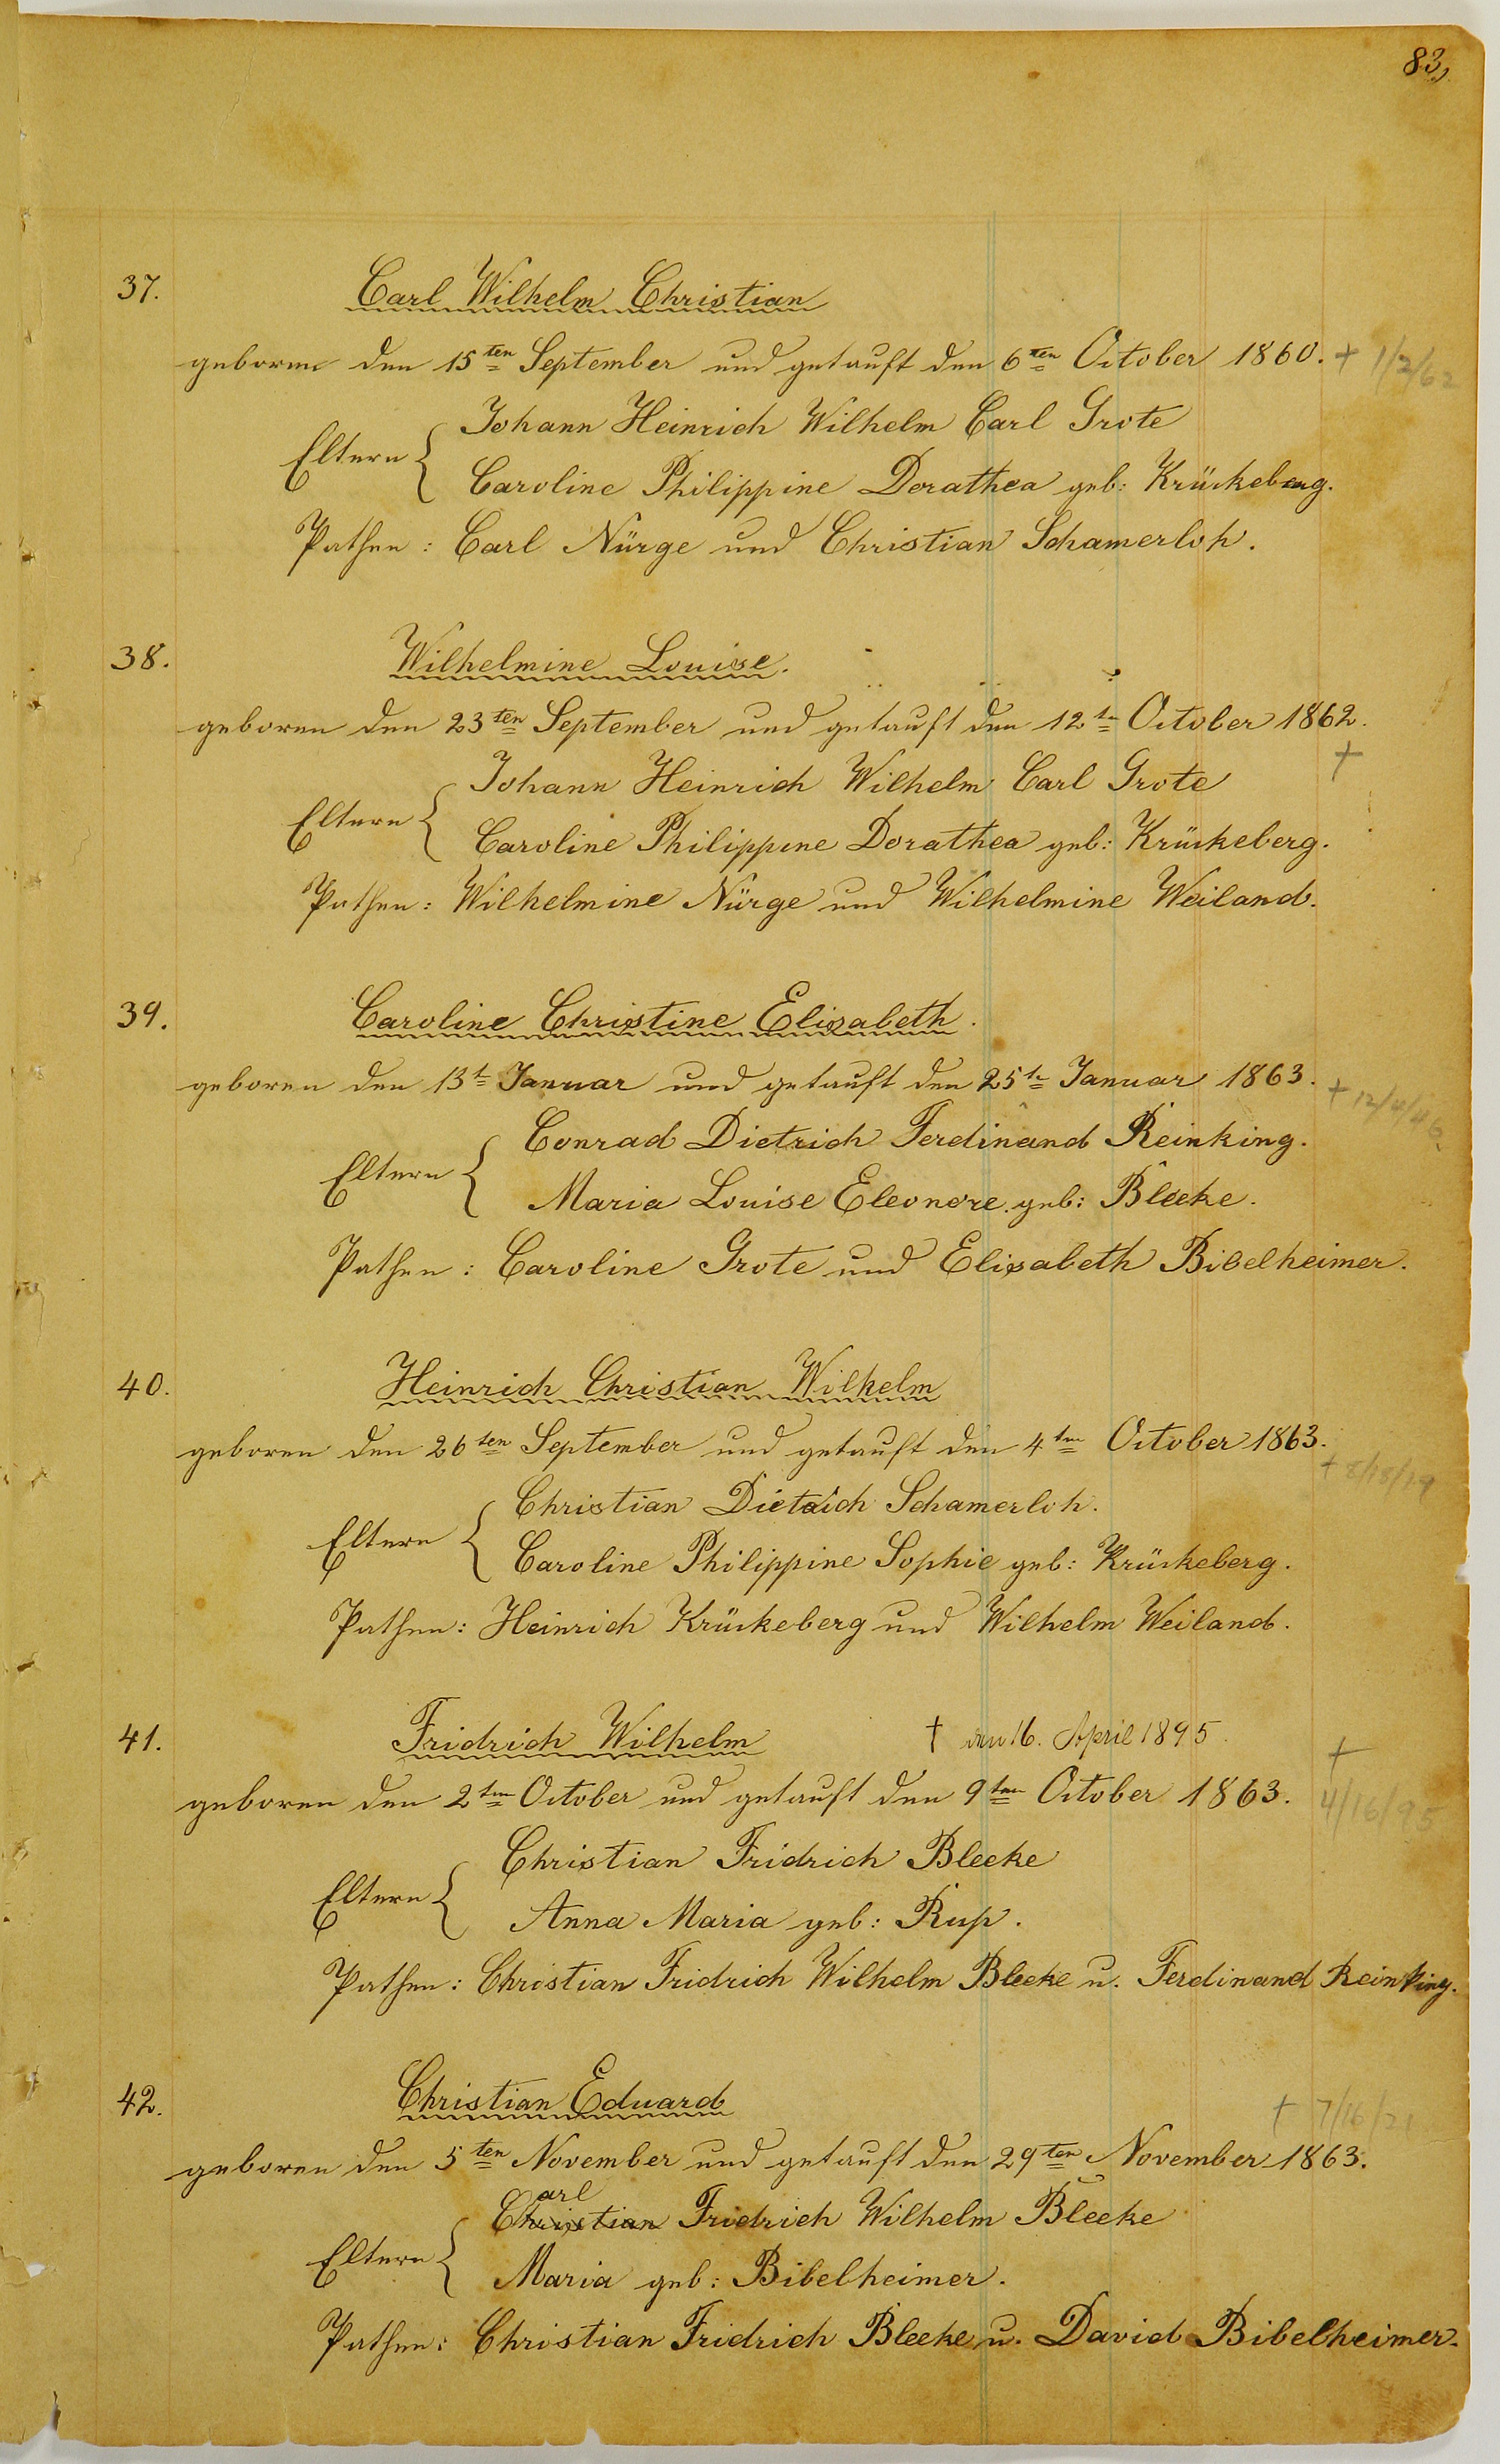 83,
37. Carl Wilhelm Christian
geboren den 15ten September und getauft den 6ten October 1860. + 1/2/62
Johann Heinrich Wilhelm Carl Grote
Eltern {
Caroline Philippine Dorathea geb: Krückeberg.
Pathen: Carl Nürge und Christian Schamerloh.
38. Wilhelmine Louise.
geboren den 23ten September und getauft den 12tn October 1862.
Johann Heinrich Wilhelm Carl Grote +
Eltern {
Caroline Philippine Dorathea geb: Krückeberg.
Pathen: Wilhelmine Nürge und Wilhelmine Weiland.
39. Caroline Christine Elisabeth.
geboren den 13t Januar und getauft den 25tn Januar 1863. +
Conrad Dietrich Ferdinand Reinking.
Eltern {
Maria Louise Eleonore geb: Bleeke.
Pathen: Caroline Grote und Elisabeth Bibelheimer.
40. Heinrich Christian Wilhelm
geboren den 26ten September und getauft den 4ten October 1863.
+ 8/18/19
Christian Dietrich Schamerloh.
Eltern {
Caroline Philippine Sophie geb: Krückeberg.
Pathen: Heinrich Krückeberg und Wilhelm Weiland.
41. Fridrich Wilhelm † den 16. April 1895. +
geboren den 2ten October und getauft den 9ten October 1863. 4/16/95
Christian Fridrich Bleeke
Eltern {
Anna Maria geb: Rup.
Pathen: Christian Fridrich Wilhelm Bleeke u. Ferdinand Reinking.
42. Christian Eduard + 7/16/21
geboren den 5ten November und getauft den 29ten November 1863.
arl
Christian Fridrich Wilhelm Bleeke
Eltern {
Maria geb: Bibelheimer.
Pathen: Christian Fridrich Bleeke u. David Bibelheimer.